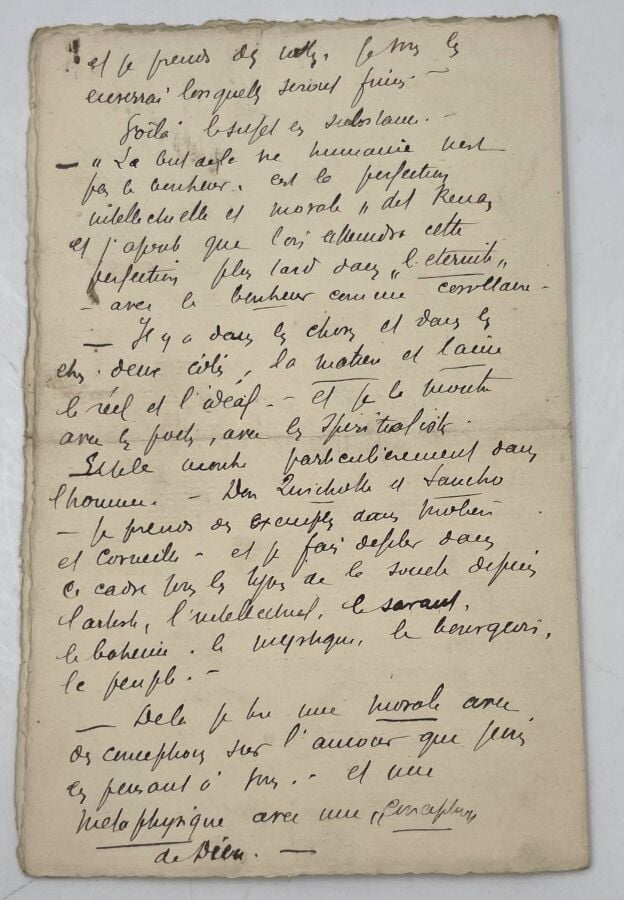 et je prends des notes. Je vous les
enverrai lorsquelles seront finies —
Voilà le sujet en substance. —
— " Le but de le humanité n'est
pas le bonheur. c'est la perfection
intellectuelle et morale " dit Renan
et j'ajoute que l'on attendra cette
perfection plus tard dans " l'éternité "
— avec le bonheur comme corollaire —
— Il y a dans les choses et dans les
etres deux côtés, la matière et l'âme
le réel et l'idéal — et je le montre
avec les poetes, avec les spiritualistes.
Je le montre particulièrement dans
l'homme. — Don Quichotte et Sancho
— Je prends des exemples dans Molière
et Corneille — et je fais defiler dans
ce cadre tous les types de la société depuis
l'artiste, l'intellectuel, le savant,
le boheme, le mystique, le bourgeois,
le peuple. —
— De là je tire une morale avec
des conceptions sur l'amour que j'écris
en pensant à vous. — et une
métaphysique avec une " conception
de Dieu. —